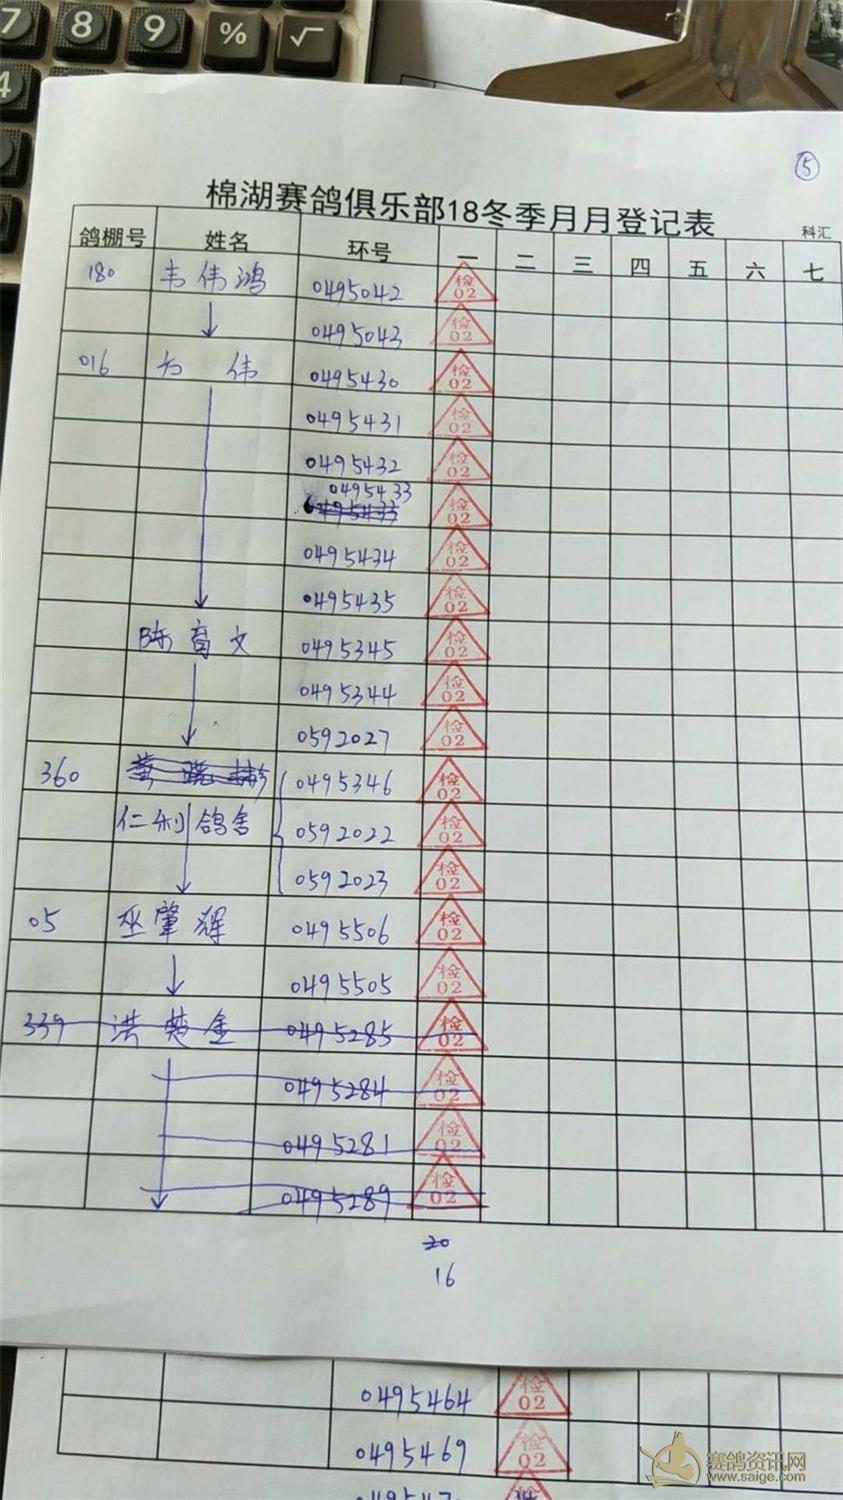 7 8 9 % √
4
⑤
棉湖赛鸽俱乐部18冬季月月登记表
科汇
鸽棚号 姓名 环号 一 二 三 四 五 六 七
180 韦伟鸿 0495042 检02
0495043 检02
016 方伟 0495430 检02
0495431 检02
0495432 检02
0495433
0495433 检02
0495434 检02
0495435 检02
陈育文 0495345 检02
0495344 检02
0592027 检02
360 0495346 检02
仁利鸽舍 0592022 检02
0592023 检02
05 巫肇辉 0495506 检02
0495505 检02
339 洪楚金 0495285 检02
0495284 检02
0495281 检02
0495289 检02
20
16
0495464 检02
0495469 检02
赛鸽资讯网
www.saige.com